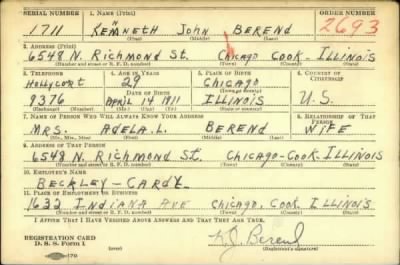 SERIAL NUMBER 1. NAME (Print) ORDER NUMBER
1711 KENNETH JOHN BEREND 2693
(First) (Middle) (Last)
2. ADDRESS (Print)
6548 N. RICHMOND ST. CHICAGO COOK. ILLINOIS
(Number and street or R. F. D. number) (Town) (County) (State)
3. TELEPHONE 4. AGE IN YEARS 5. PLACE OF BIRTH 6. COUNTRY OF CITIZENSHIP
HOLLYCORT 29 CHICAGO
DATE OF BIRTH (Town or county)
9376 APRIL 14 1911 ILLINOIS U.S.
(Exchange) (Number) (Mo.) (Day) (Yr.) (State or country)
7. NAME OF PERSON WHO WILL ALWAYS KNOW YOUR ADDRESS 8. RELATIONSHIP OF THAT PERSON
MRS. ADELA. L. BEREND WIFE
(Mr., Mrs., Miss) (First) (Middle) (Last)
9. ADDRESS OF THAT PERSON
6548 N. RICHMOND ST. CHICAGO-COOK. ILLINOIS
(Number and street or R. F. D. number) (Town) (County) (State)
10. EMPLOYER'S NAME
BECKLEY-CARDY.
11. PLACE OF EMPLOYMENT OR BUSINESS
1632 INDIANA AVE CHICAGO. COOK. ILLINOIS
(Number and street or R. F. D. number) (Town) (County) (State)
I AFFIRM THAT I HAVE VERIFIED ABOVE ANSWERS AND THAT THEY ARE TRUE.
REGISTRATION CARD
D. S. S. Form 1
K J Berend
(Registrant's signature)